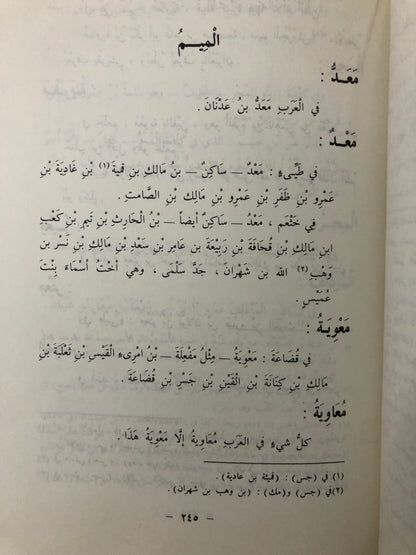 الْمِيـمُ
مَعَـدُّ :
في الْعَرَبِ مَعَدُّ بنُ عَدْنَانَ .
مَعْـدٌ :
في طَيِّىءٍ : مَعْدٌ ــ سَاكِنٌ ــ بنُ مَالِكِ بْنِ قمية (١) بْنِ غَادِيَةَ بْنِ
عَمْرِو بْنِ ظَفَرِ بْنِ عَمْرِو بْنِ مَالِكِ بْنِ الصَّامتِ .
في خَثْعَم ، مَعْدُ ــ سَاكِنٌ أيضاً ــ بْنُ الْحَارِثِ بْنِ تَيمِ بْنِ كَعْبِ
ابنِ مَالِكِ بْنِ قُحَافَةَ بْنِ رَبِيعَةَ بن عَامِرِ بْنِ سَعْدِ بْنِ مَالِكِ بْنِ نَسْرِ بن
وَهْبِ (٢) الله بن شَهْرَانَ ، جَدُّ سَلْمَى ، وهي أُخْتُ أَسْمَاءَ بِنْتِ
عُمَيْسٍ .
مَعْوِيَـةُ :
في قُضَاعَةَ : مَعْوِيَةُ ــ مِثْلُ مَفْعِلَة ــ بْنُ امْرِىءِ الْقَيْسِ بْنِ ثَعْلَبَةَ بْنِ
مَالِكِ بْنِ كِنَانَةَ بْنِ الْقَيْنِ بْنِ جَسْرِ بْنِ قُضَاعَةَ .
مُعَاوِيَةُ :
كلُّ شيءٍ في الْعَرَبِ مُعَاوِيَةُ إلَّا مَعْوِيَةُ هَذَا .
(١) في (جس) : (قميئة بن عادية) .
(٢) في (جس) و(مك) : (بن وهب بن شهران) .
ــ ٢٤٥ ــ